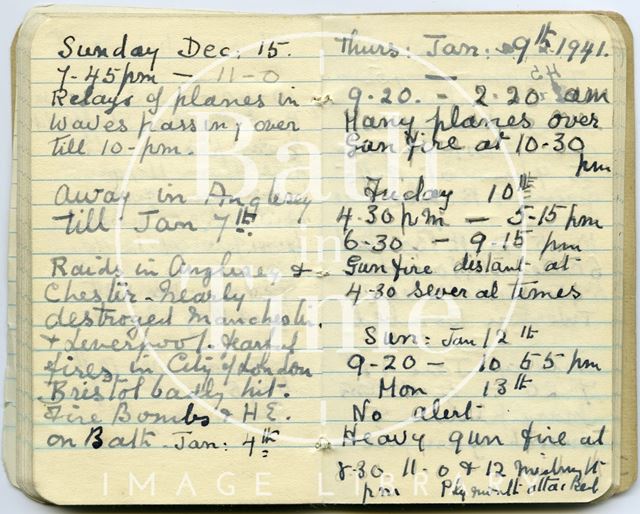 Sunday Dec. 15.
7-45pm — 11-0
Relays of planes in
waves passing over
till 10-pm.
Away in Anglesey
till Jan 7th.
Raids in Anglesey &
Chester - Nearly
destroyed Manchester.
& Liverpool. Fearful
fires in City of London
Bristol badly hit.
Fire Bombs & H.E.
on Bath Jan: 4th
Thurs: Jan: 9th 1941.
9-20. - 2-20 am
Many planes over
Gun fire at 10-30
pm
Friday 10th
4.30pm — 5-15pm
6-30 - 9-15 pm
Gunfire distant at
4-30 several times
Sun: Jan 12th
9-20 - 10 55 pm
Mon 13th
No alert
Heavy gun fire at
8-30 11-0 & 12 midnight
pm Plymouth attacked
Bath
in
Time
IMAGE LIBRARY